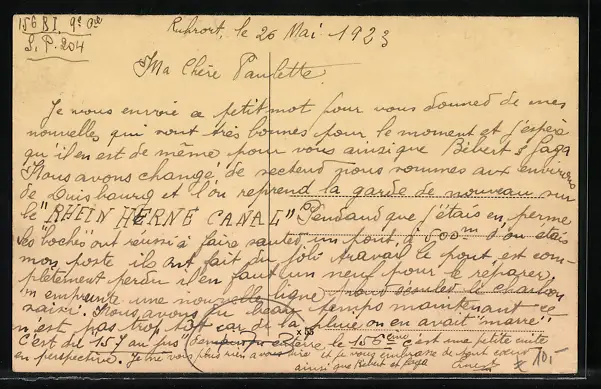 156 R I. 9e Cie
S. P. 204
Ruhrort, le 26 Mai 1923
Ma Chère Paulette
Je vous envoie ce petit mot pour vous donner de mes
nouvelles qui sont très bonnes pour le moment et j'espère
qu'il en est de même pour vous ainsi que Bébert & Gaga
Nous avons changé de secteur nous sommes aux environs
de Duisbourg et l'on reprend la garde de nouveau sur
le "RHEIN HERNE CANAL" Pendant que j'étais en perme
les "boches" ont réussi à faire sauter un pont, à 500m d'où étais
mon poste ils ont fait du joli travail le pont est com-
plètement perdu il en faut un neuf pour le réparer.
pour écouler le charbon
on emprunte une nouvelle ligne
Nous avons du beau temps maintenant ce
n'est pas trop tôt car de la pluie on en avait marre
C'est du 15 au le 156ème c'est une petite suite
en perspective. Je ne vous plus rien dire et je vous embrasse de tout coeur
ainsi que Bébert et Gaga
10,-